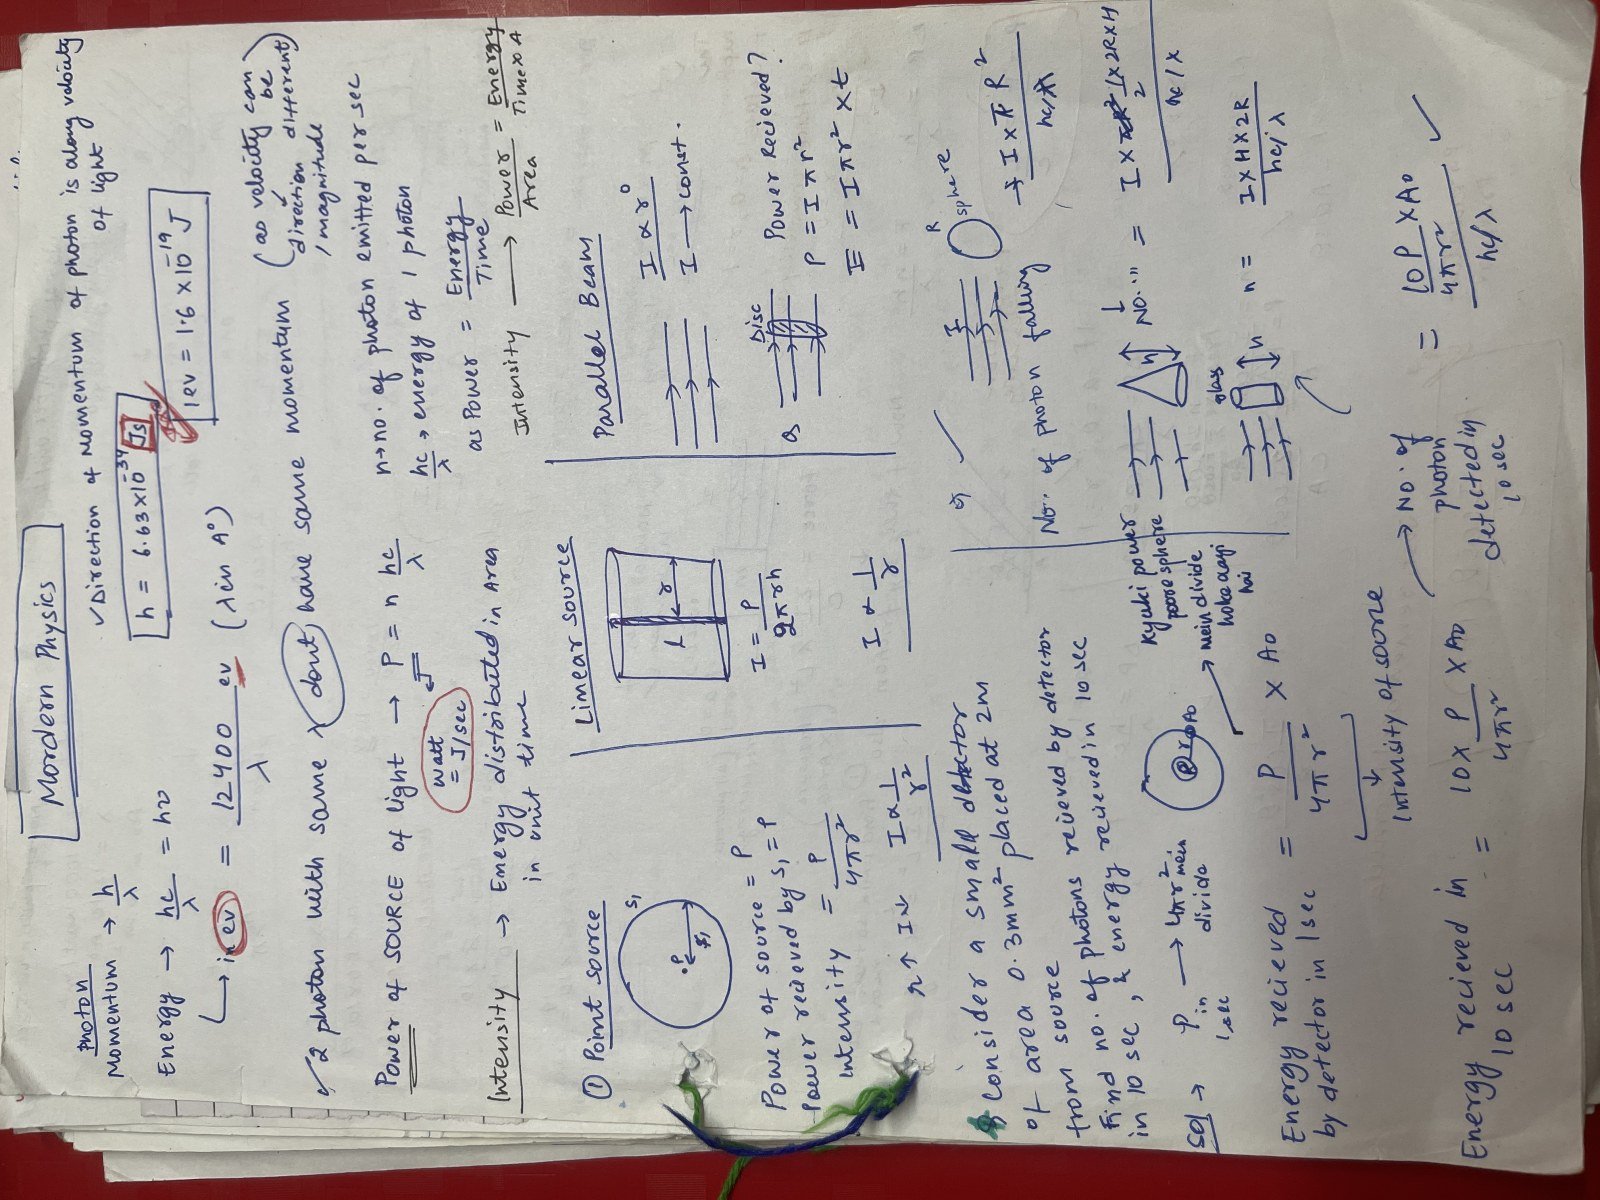 Mordern Physics
Photon
Momentum → h/λ
✓ Direction of Momentum of photon is along velocity of light
Energy → hc/λ = hν
h = 6.63×10⁻³⁴ Js
1ev = 1.6 × 10⁻¹⁹ J
↳ in ev = 12400/λ ev (λ in A°)
✓ 2 photon with same λ dont have same momentum (as velocity can be direction different / magnitude)
Power of SOURCE of light → P = n hc/λ
n → no. of photon emitted per sec
hc/λ → energy of 1 photon
watt = J/sec
as Power = Energy/Time
Intensity → Energy distributed in Area in unit time
Intensity → Power/Area = Energy/Time × A
① Point source
S₁
P
Power at source = P
Power recieved by S₁ = P
Intensity = P/4πr²
r↑ I↓ I ∝ 1/r²
Linear source
r
I = P/2πrh
I ∝ 1/r
Parallel Beam
I ∝ r⁰
I → const.
Q Disc Power Recieved?
P = I πr²
E = Iπr² × t
Q Consider a small detector
of area 0.3mm² placed at 2m
from source
Find no. of photons recieved by detector
in 10 sec, & energy recieved in 10 sec
Sol → P in 1 sec → 4πr² mein divide
P r A₀
→ Kyuki power poore sphere mein divide hoke aayi hai
Energy recieved by detector in 1 sec = P/4πr² × A₀
↓ Intensity of soore
Energy recieved in 10 sec = 10× P/4πr² × A₀
→ No. of photon detected in 10 sec
= (10P/4πr² × A₀)/(hc/λ) ✓
Q ✓
I R sphere
No. of photon falling → (I × πR²)/(hc/λ)
h ↓ No.... = (I × 1/2 × 2R×H)/(hc/λ)
glass h n = (I × H × 2R)/(hc/λ)